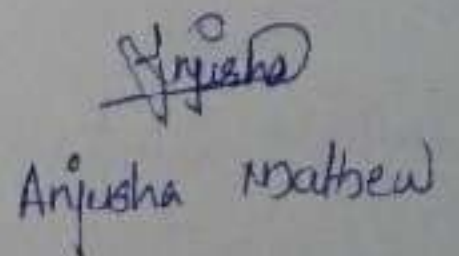 Anjusha
Anjusha Mathew